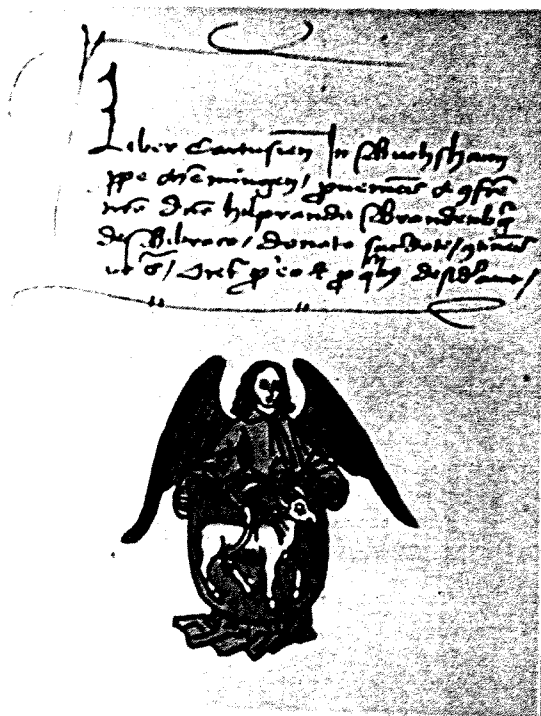 Liber Cartusien In Buchshaim
ppe Memingen, pueniens a gfre
nro Dno hilprando Brandenbg
de Bibraco, Donato sacdote, gtines
ut s, Oret p eo et p qbus desidauit,